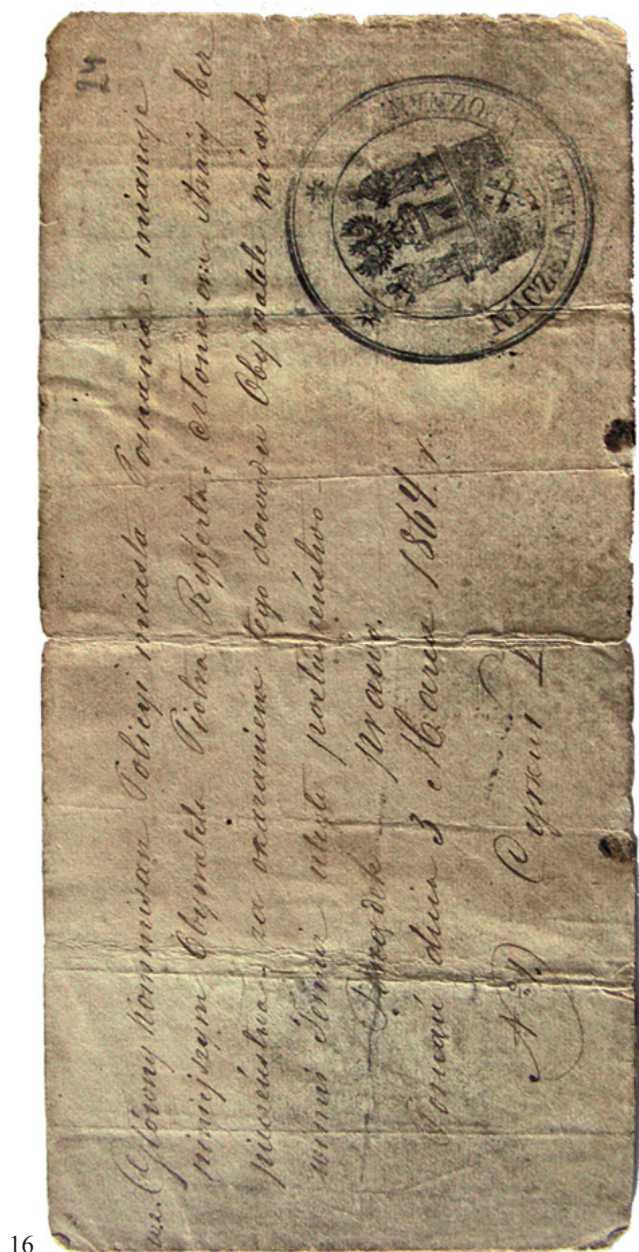 24
Główny Kommisarz Policyi miasta Poznania mianuje
niniejszym Obywatela Piotra członkiem straży bez
pieczeństwa, za okazaniem tego dowodu Obywatele miasta
winni Temu uległe posłuszeństwo
Porządek prawo.
Poznań dnia 3 Marca 1864. r.
Cyrkuł I
NACZELNIK POZNANIA
16